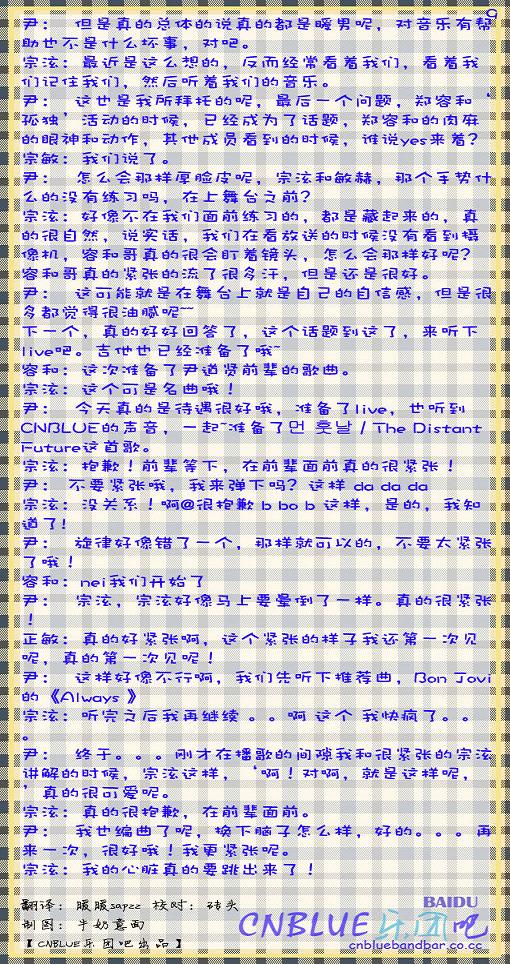 9
尹： 但是真的总体的说真的都是暖男呢，对音乐有帮
助也不是什么坏事，对吧。
宗泫：最近是这么想的，反而经常看着我们，看着我
们记住我们，然后听着我们的音乐。
尹： 这也是我所拜托的呢，最后一个问题，郑容和‘
孤独’活动的时候，已经成为了话题，郑容和的肉麻
的眼神和动作，其他成员看到的时候，谁说yes来着？
宗敏：我们说了。
尹： 怎么会那样厚脸皮呢，宗泫和敏赫，那个手势什
么的没有练习吗，在上舞台之前？
宗泫：好像不在我们面前练习的，都是藏起来的，真
的很自然，说实话，我们在看放送的时候没有看到摄
像机，容和哥真的很会盯着镜头，怎么会那样好呢？
容和哥真的紧张的流了很多汗，但是还是很好。
尹： 这可能就是在舞台上就是自己的自信感，但是很
多都觉得很油腻呢~~
下一个，真的好好回答了，这个话题到这了，来听下
live吧。吉他也已经准备了哦~
容和：这次准备了尹道贤前辈的歌曲。
宗泫：这个可是名曲哦！
尹： 今天真的是待遇很好哦，准备了live，也听到
CNBLUE的声音，一起~准备了먼 훗날 / The Distant
Future这首歌。
宗泫：抱歉！前辈等下，在前辈面前真的很紧张！
尹： 不要紧张哦，我来弹下吗？这样 da da da
宗泫：没关系！啊@很抱歉 b bo b 这样，是的，我知
道了！
尹： 旋律好像错了一个，那样就可以的，不要太紧张
了哦！
容和：nei我们开始了
尹： 宗泫，宗泫好像马上要晕倒了一样。真的很紧张
！
正敏：真的好紧张啊，这个紧张的样子我还第一次见
呢，真的第一次见呢！
尹： 这样好像不行啊，我们先听下推荐曲，Bon Jovi
的《Always 》
宗泫：听完之后我再继续 。。啊 这个 我快疯了。。
。
尹： 终于。。。刚才在播歌的间隙我和很紧张的宗泫
讲解的时候，宗泫这样，‘啊！对啊，就是这样呢，
’真的很可爱呢。
宗泫：真的很抱歉，在前辈面前。
尹： 我也编曲了呢，换下脑子怎么样，好的。。。再
来一次，很好哦！我更紧张呢。
宗泫：我的心脏真的要跳出来了！
翻译：暖暖sapzz 校对：砖头
制图：牛奶意面
【CNBLUE乐团吧出品】
BAIDU
CNBLUE乐团吧
cnbluebandbar.co.cc